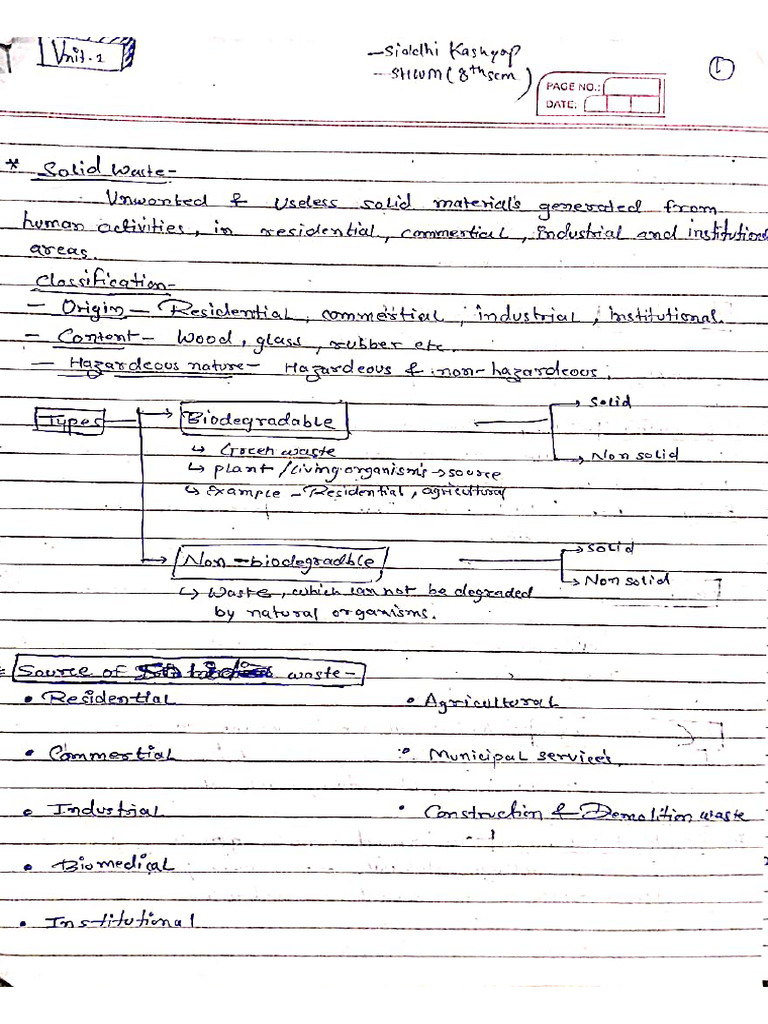 Unit-1
- Siddhi Kashyap
- SHWM (8th sem)
1
PAGE NO.:
DATE:
* Solid Waste -
Unwanted & Useless solid materials generated from
human activities, in residential, commertial, industrial and institutional
areas.
Classification-
- Origin - Residential, commertial, industrial, institutional.
- Content - Wood, glass, rubber etc.
- Hazardeous nature - Hazardeous & non-hazardeous.
Types → Biodegradable → Solid
↳ Green waste → Non solid
↳ plant/living organisms → source
↳ Example - Residential, agricultural
→ Non-biodegradble → solid
→ Non solid
↳ Waste, which can not be degraded
by natural organisms.
Source of waste -
• Residential • Agricultural
• Commertial • Municipal services.
• Industrial • Construction & Demolition waste
• Biomedical
• Institutional